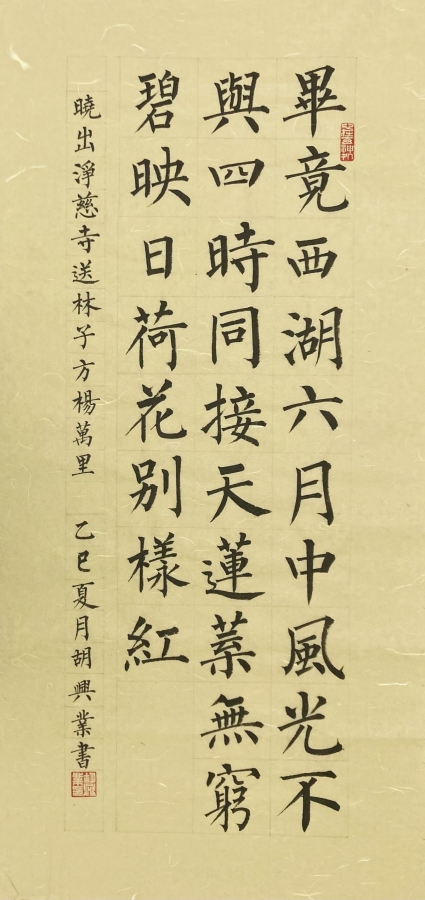 畢竟西湖六月中風光不
與四時同接天蓮葉無窮
碧映日荷花别樣紅
曉出淨慈寺送林子方楊萬里 乙巳夏月胡興業書